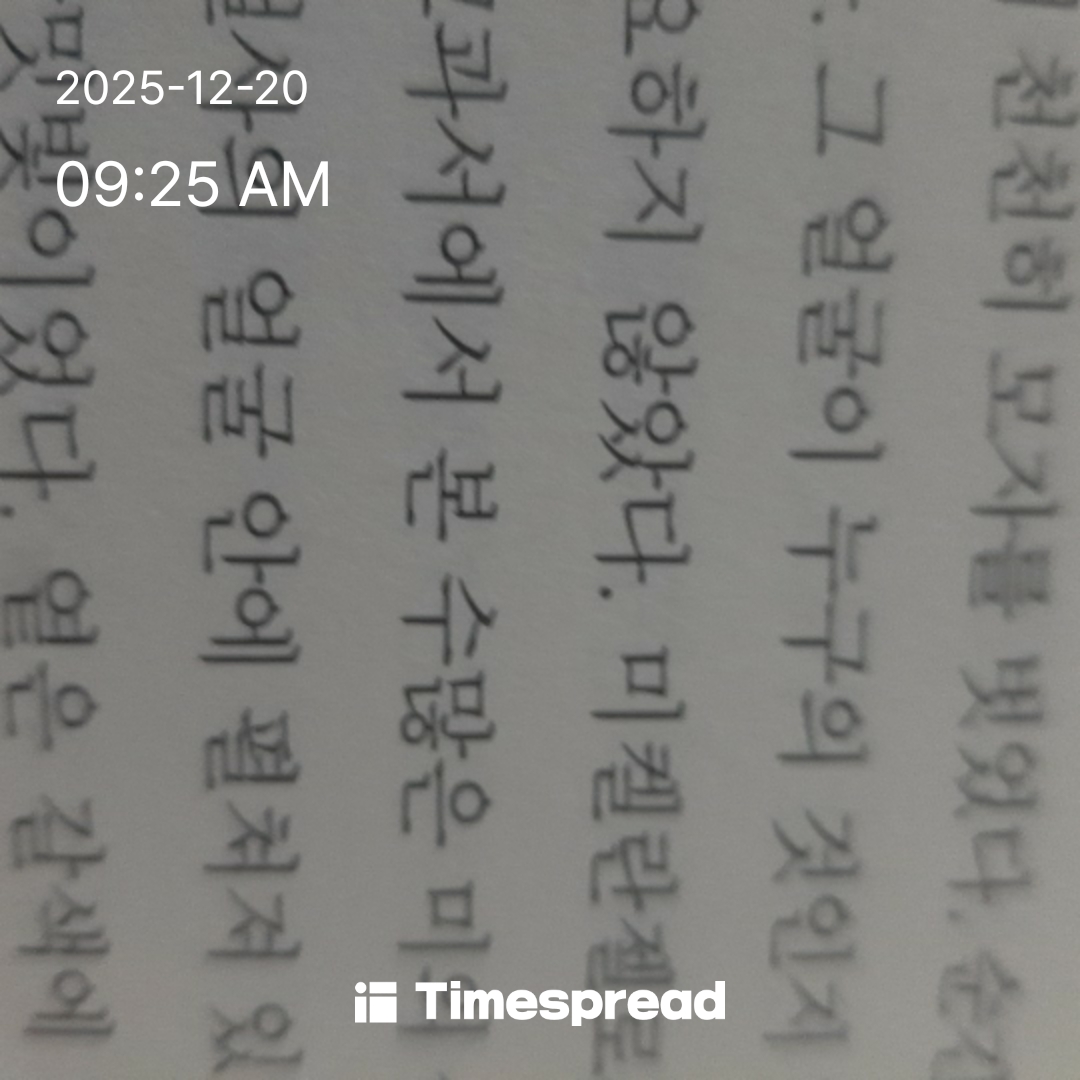 2025-12-20
09:25 AM
천천히 모자를 벗었다.
그 얼굴이 누구의 것인지
요하지 않았다. 미켈란젤로
과서에서 본 수많은 미의
얼굴 안에 펼쳐져 있
밋빛이었다. 옅은 갈색에
Timespread